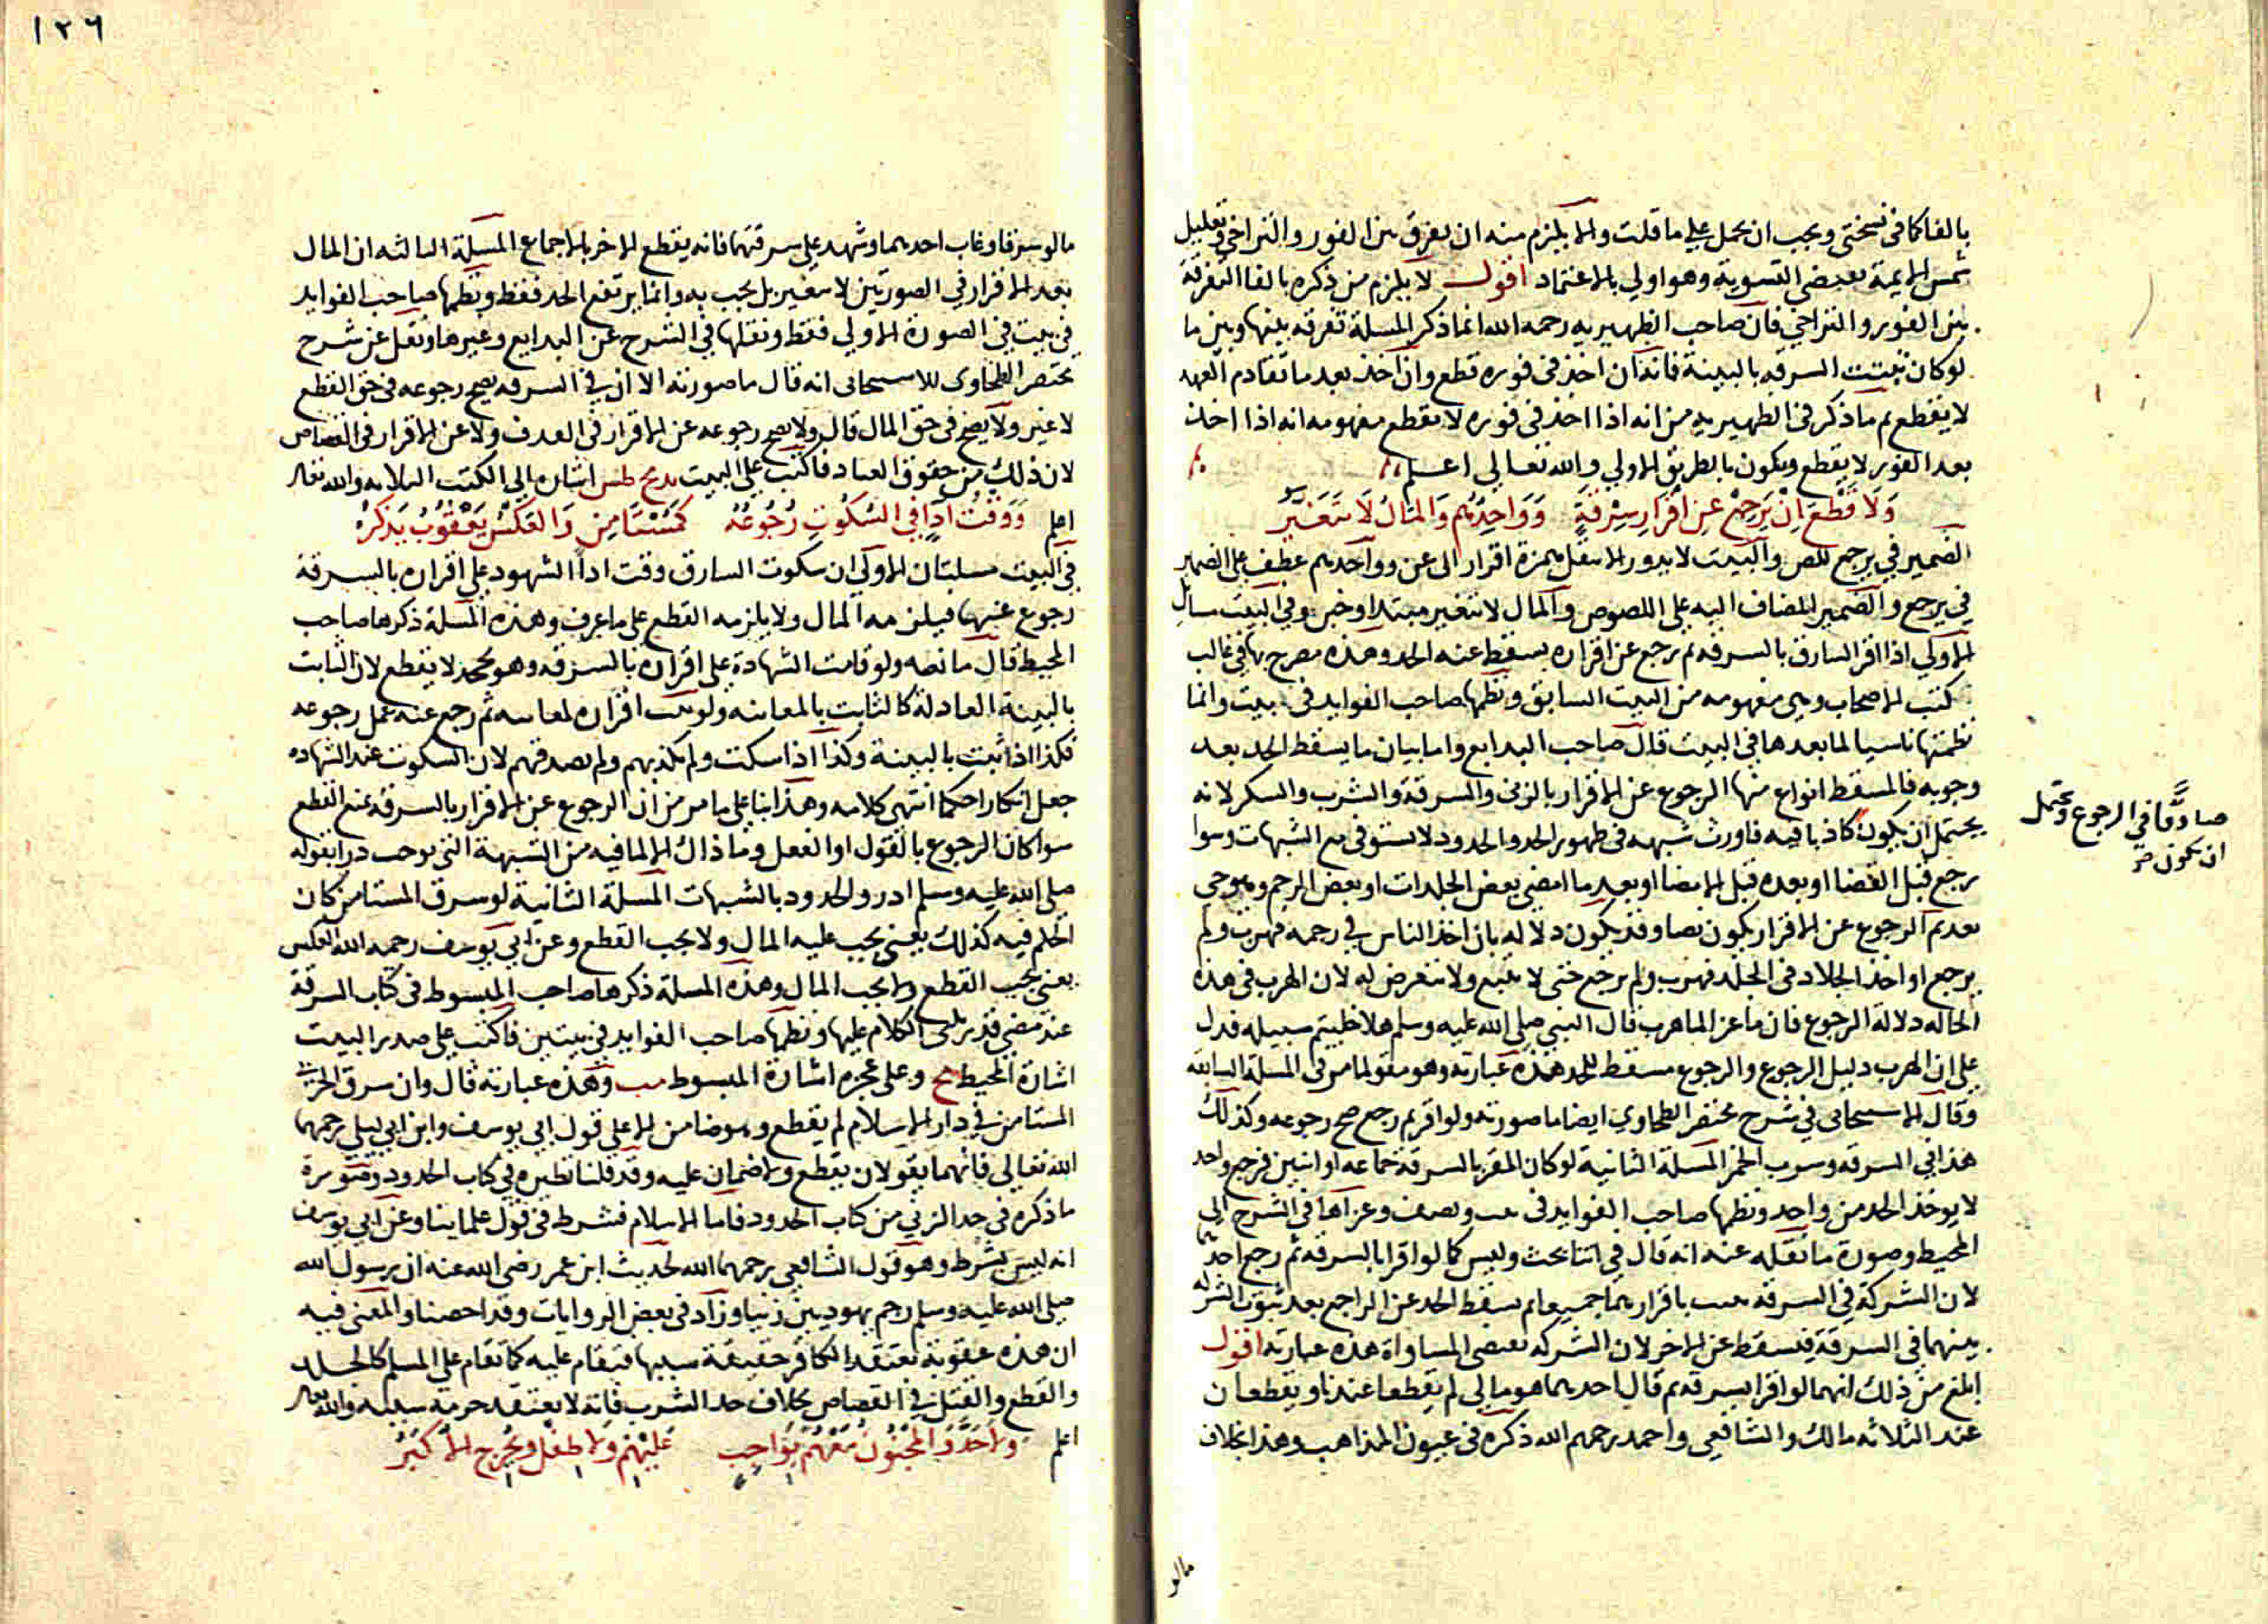 بالفا كما في نسختي ويجب ان يحمل علي ما قلت والا يلزم منه ان يفرق بين الفور والتراخي وتعليل
شمس الايمة يقتضي التسوية وهو اولي بالاعتماد اقول لا يلزم من ذكره بالفا التفرقة
بين الفور والتراخي فان صاحب الظهيريه رحمه الله انما ذكر المسلة تفرقه بينها وبين ما
لو كان ثبتت السرقه بالبينة فانه ان اخذ في فوره قطع وان اخذ بعد ما تقادم العهد
لا يقطع ثم ما ذكر في الظهيريه من انه اذا اخذ في فوره لا يقطع مفهومه انه اذا اخذ
بعد الفور لا يقطع ويكون بالطريق الاولي والله تعالي اعلم
وَلَا قَطْعَ اِنْ يَرجِعْ عن اقْرَارِ سِرْقَةٍ وَوَاحِدُهُم وَالمَالُ لَا يَتَغَيَّرُ
الضمير في يرجع للص والبيت لا يدور الا بنقل همزة اقرار الى عن وواحدهم عطف على الضمير
في يرجع والضمير المضاف اليه علي اللصوص والمال لا يتغير مبتدا وخبر وفي البيت مسايل
الاولي اذا اقر السارق بالسرقه ثم رجع عن اقراره يسقط عنه الحد وهذه مصرح بها في غالب
كتب الاصحاب وهي مفهومه من البيت السابق ونظمها صاحب الفوايد في بيت وانما
نظمتها تاسيا لما بعدها في البيت قال صاحب البدايع واما بيان ما يسقط الحد بعد
وجوبه فالمسقط انواع منها الرجوع عن الاقرار بالزنى والسرقة والشرب والسكر لانه
يحتمل ان يكون كاذبا فيه فاورث شبهه في ظهور الحد والحدود لا تستوفى مع الشبهات وسوا
صادقا في الرجوع ويحتمل
ان يكون صح
رجع قبل القضا او بعده قبل الامضا او بعد ما امضي بعض الجلدات او بعض الرجم وهو حي
بعد ثم الرجوع عن الاقرار يكون نصا وقد يكون دلاله بان اخذ الناس في رجمه فهرب ولم
يرجع او اخذ الجلاد في الجلد فهرب ولم يرجع حتى لا يتبع ولا يتعرض له لان الهرب في هذه
الحاله دلالة الرجوع فان ماعزا لما هرب قال النبي صلى الله عليه وسلم هلا خليتم سبيله فدل
على ان الهرب دليل الرجوع والرجوع مسقط للحد هذه عبارته وهو مقو لما مر في المسلة السابقه
وقال الاسبيجابي في شرح مختصر الطحاوي ايضا ما صورته ولو اقر ثم رجع صح رجوعه وكذلك
هذا في السرقه وشرب الخمر المسلة الثانية لو كان المقر بالسرقة جماعه او اثنين فرجع واحد
لا يوخذ الحد من واحد ونظمها صاحب الفوايد في بيت ونصف وعزاها في الشرح الى
المحيط وصورة ما نقله عنه انه قال في اثنا بحث وليس كما لو اقرا بالسرقه ثم رجع احدهما
لان الشركة في السرقه تثبت باقرارهما جميعا ثم يسقط الحد عن الراجع بعد ثبوت الشركه
بينهما في السرقة فيسقط عن الاخر لان الشركه تقتضي المساواة هذه عبارته اقول
ابلغ من ذلك انهما لو اقرا بسرقه ثم قال احدهما هو مالي لم يقطعا عندنا ويقطعان
عند الثلاثه مالك والشافعي واحمد رحمهم الله ذكره في عيون المذاهب وهذا بخلاف
مالو
١٢٦
ما لو سرقا وغاب احدهما وشهد على سرقتهما فانه يقطع الاخر بالاجماع المسلة الثالثه ان المال
بعد الاقرار في الصورتين لا يتغير بل يجب به وانما يرتفع الحد فقط ونظمها صاحب الفوايد
في بيت في الصورة الاولي فقط ونقلها في الشرح عن البدايع وغيرها ونقل عن شرح
مختصر الطحاوي للاسبيجابي انه قال ما صورته الا ان في السرقه يصح رجوعه في حق القطع
لا غير ولا يصح في حق المال قال ولا يصح رجوعه عن الاقرار في القذف ولا عن الاقرار في القصاص
لان ذلك من حقوق العباد فاكتب على البيت بدع مح طس اشاره الى الكتب الثلاثه والله تعالى
اعلم وَوَقْتُ ادَا في السُكُوتِ رُجُوعُهُ كَمُسْتَامِنٍ وَالعَكسُ يَعْقُوبُ يَذكُرُ
في البيت مسلتان الاولى ان سكوت السارق وقت ادا الشهود علي اقراره بالسرقة
رجوع عنها فيلزمه المال ولا يلزمه القطع على ما عرف وهذه المسلة ذكرها صاحب
المحيط قال ما نصه ولو قامت الشهادة على اقراره بالسرقه وهو يجحد لا يقطع لان الثابت
بالبينة العادلة كالثابت بالمعاينه ولو ثبت اقراره معاينه ثم رجع عنه عمل رجوعه
فكذا اذا ثبت بالبينة وكذا اذا سكت ولم يكذبهم ولم يصدقهم لان السكوت عند الشهاده
جعل انكارا حكما انتهى كلامه وهذا بنا على ما مر من ان الرجوع عن الاقرار بالسرقه يمنع القطع
سوا كان الرجوع بالقول او الفعل وما ذاك الا لما فيه من الشبهة التي توجب درا بقوله
صلى الله عليه وسلم ادروا الحدود بالشبهات المسلة الثانية لو سرق المستامن كان
الحكم فيه كذلك يعني يجب عليه المال ولا يجب القطع وعن ابي يوسف رحمه الله العكس
يعني يجب القطع ولا يجب المال وهذه المسلة ذكرها صاحب المبسوط في كتاب السرقة
عند مضي قدر ثلثي الكلام عليها ونظمها صاحب الفوايد في بيتين فاكتب على صدر البيت
اشارة المحيط مح وعلى عجزه اشارة المبسوط مب وهذه عبارته قال وان سرق الحربي
المستامن في دار الاسلام لم يقطع وهو ضامن الا على قول ابي يوسف وابن ابي ليلى رحمهما
الله تعالى فانهما يقولان يقطع ولا ضمان عليه وقد قلنا نظيره في كتاب الحدود وصورة
ما ذكره في حد الزنى من كتاب الحدود فاما الاسلام فشرط في قول علماينا وعن ابي يوسف
انه ليس بشرط وهو قول الشافعي رحمهما الله لحديث ابن عمر رضي الله عنه ان رسول الله
صلى الله عليه وسلم رجم يهوديين زنيا وزاد في بعض الروايات وقد احصنا والمعنى فيه
ان هذه عقوبة يعتقد الكافر حقيقة سببها فيقام عليه كما تقام على المسلم كالجلد
والقطع والقتل في القصاص بخلاف حد الشرب فانه لا يعتقد حرمة سببه والله تعالى
اعلم ولا حَدَّ والمجنونُ مَعْهُم بواجبٍ عَلَيْهِم ولا طفلٌ ويُخرج الاكبَرُ